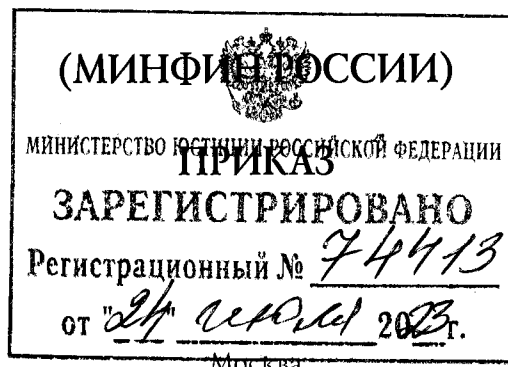 (МИНФИН РОССИИ)
МИНИСТЕРСТВО ЮСТИЦИИ РОССИЙСКОЙ ФЕДЕРАЦИИ
ПРИКАЗ
ЗАРЕГИСТРИРОВАНО
Регистрационный № 74413
от "24" июля 2023г.
Москва